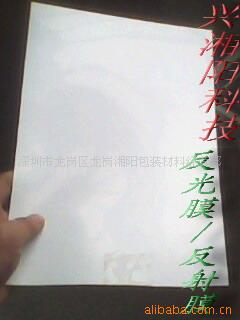 兴湘阳科技
深圳市龙岗区龙岗湘阳包装材料经营部
反光膜/反射膜
alibaba.com.cn